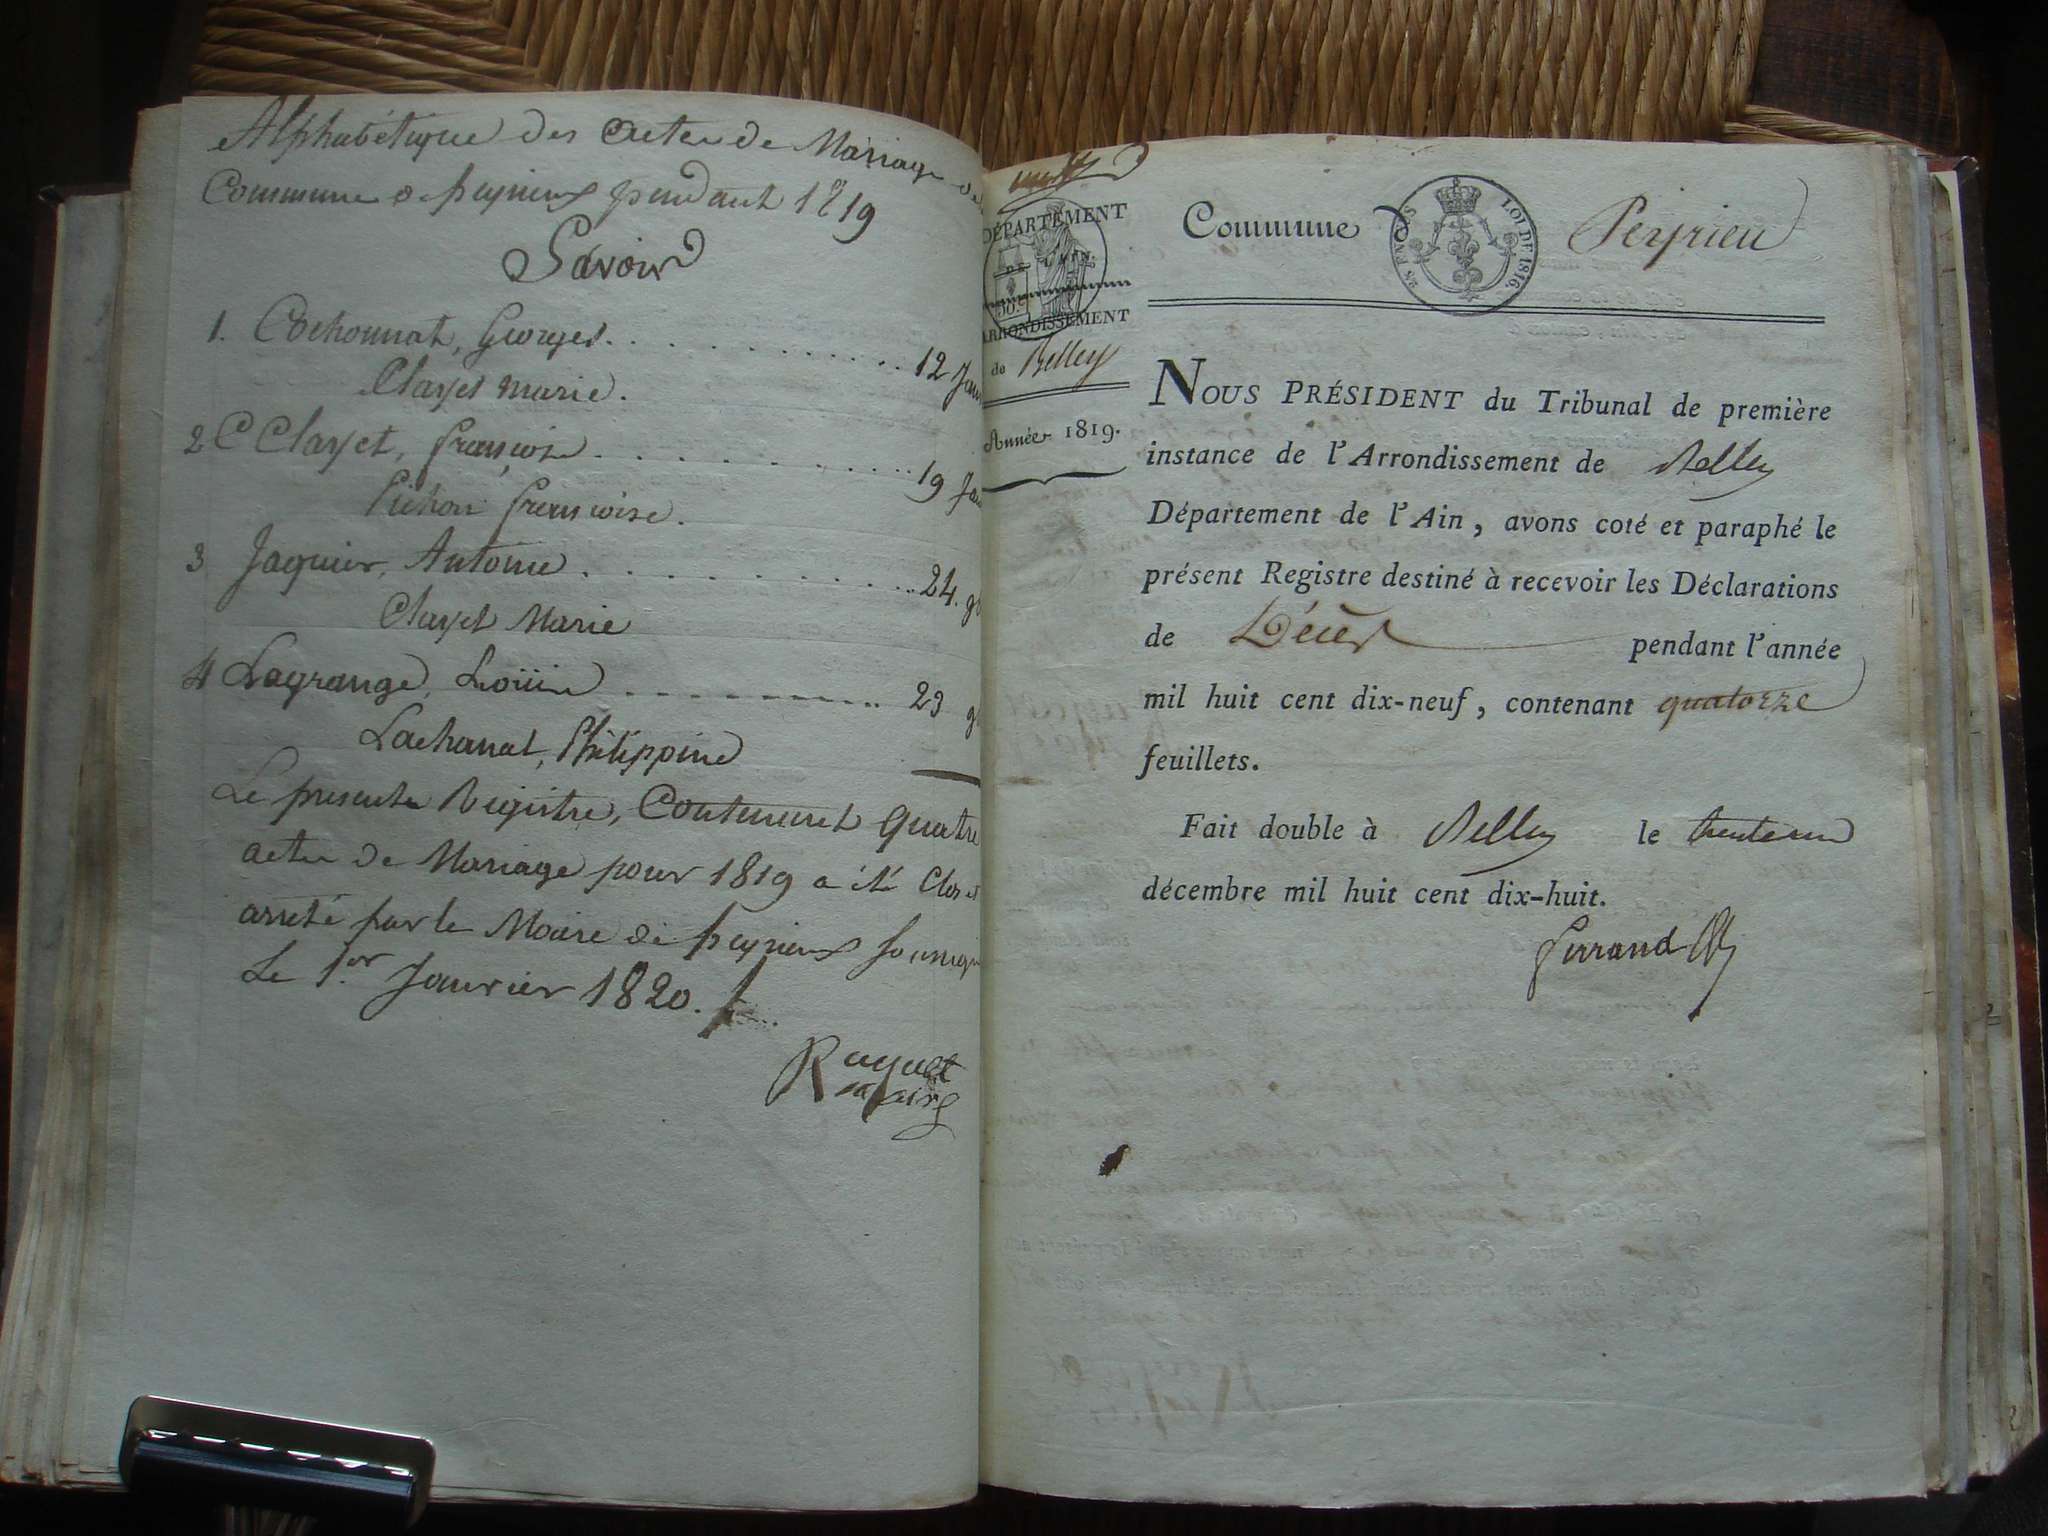 Alphabétique des Actes de Mariage de
Commune de peyrieux pendant 1819
Savoir
1. Cochonnat, Georges. . . . . . . . . . . . . . 12 Jan
Clayet marie.
2 Clayet, François . . . . . . . . . . . . . 19 Jan
Pichon françoise.
3 Jaquier, Antoine . . . . . . . . . . . . . 24.
Clayet Marie
4 Lagrange, Loüis . . . . . . . . . . . 23
Lachanat, Philippine
Le present Registre, Contenant Quatre
actes de Mariage pour 1819 a été Clos et
arreté par le Maire de peyrieux soussigné
Le 1.er Janvier 1820.
Ruquet
maire
DÉPARTEMENT
DE L'AIN.
50.C
ARRONDISSEMENT
de Belley
Année 1819.
Commune Peyrieu
LOI DE 1816.
NOUS PRÉSIDENT du Tribunal de première
instance de l'Arrondissement de Belley
Département de l'Ain, avons coté et paraphé le
présent Registre destiné à recevoir les Déclarations
de Décès pendant l'année
mil huit cent dix-neuf, contenant quatorze
feuillets.
Fait double à Belley le trente un
décembre mil huit cent dix-huit.